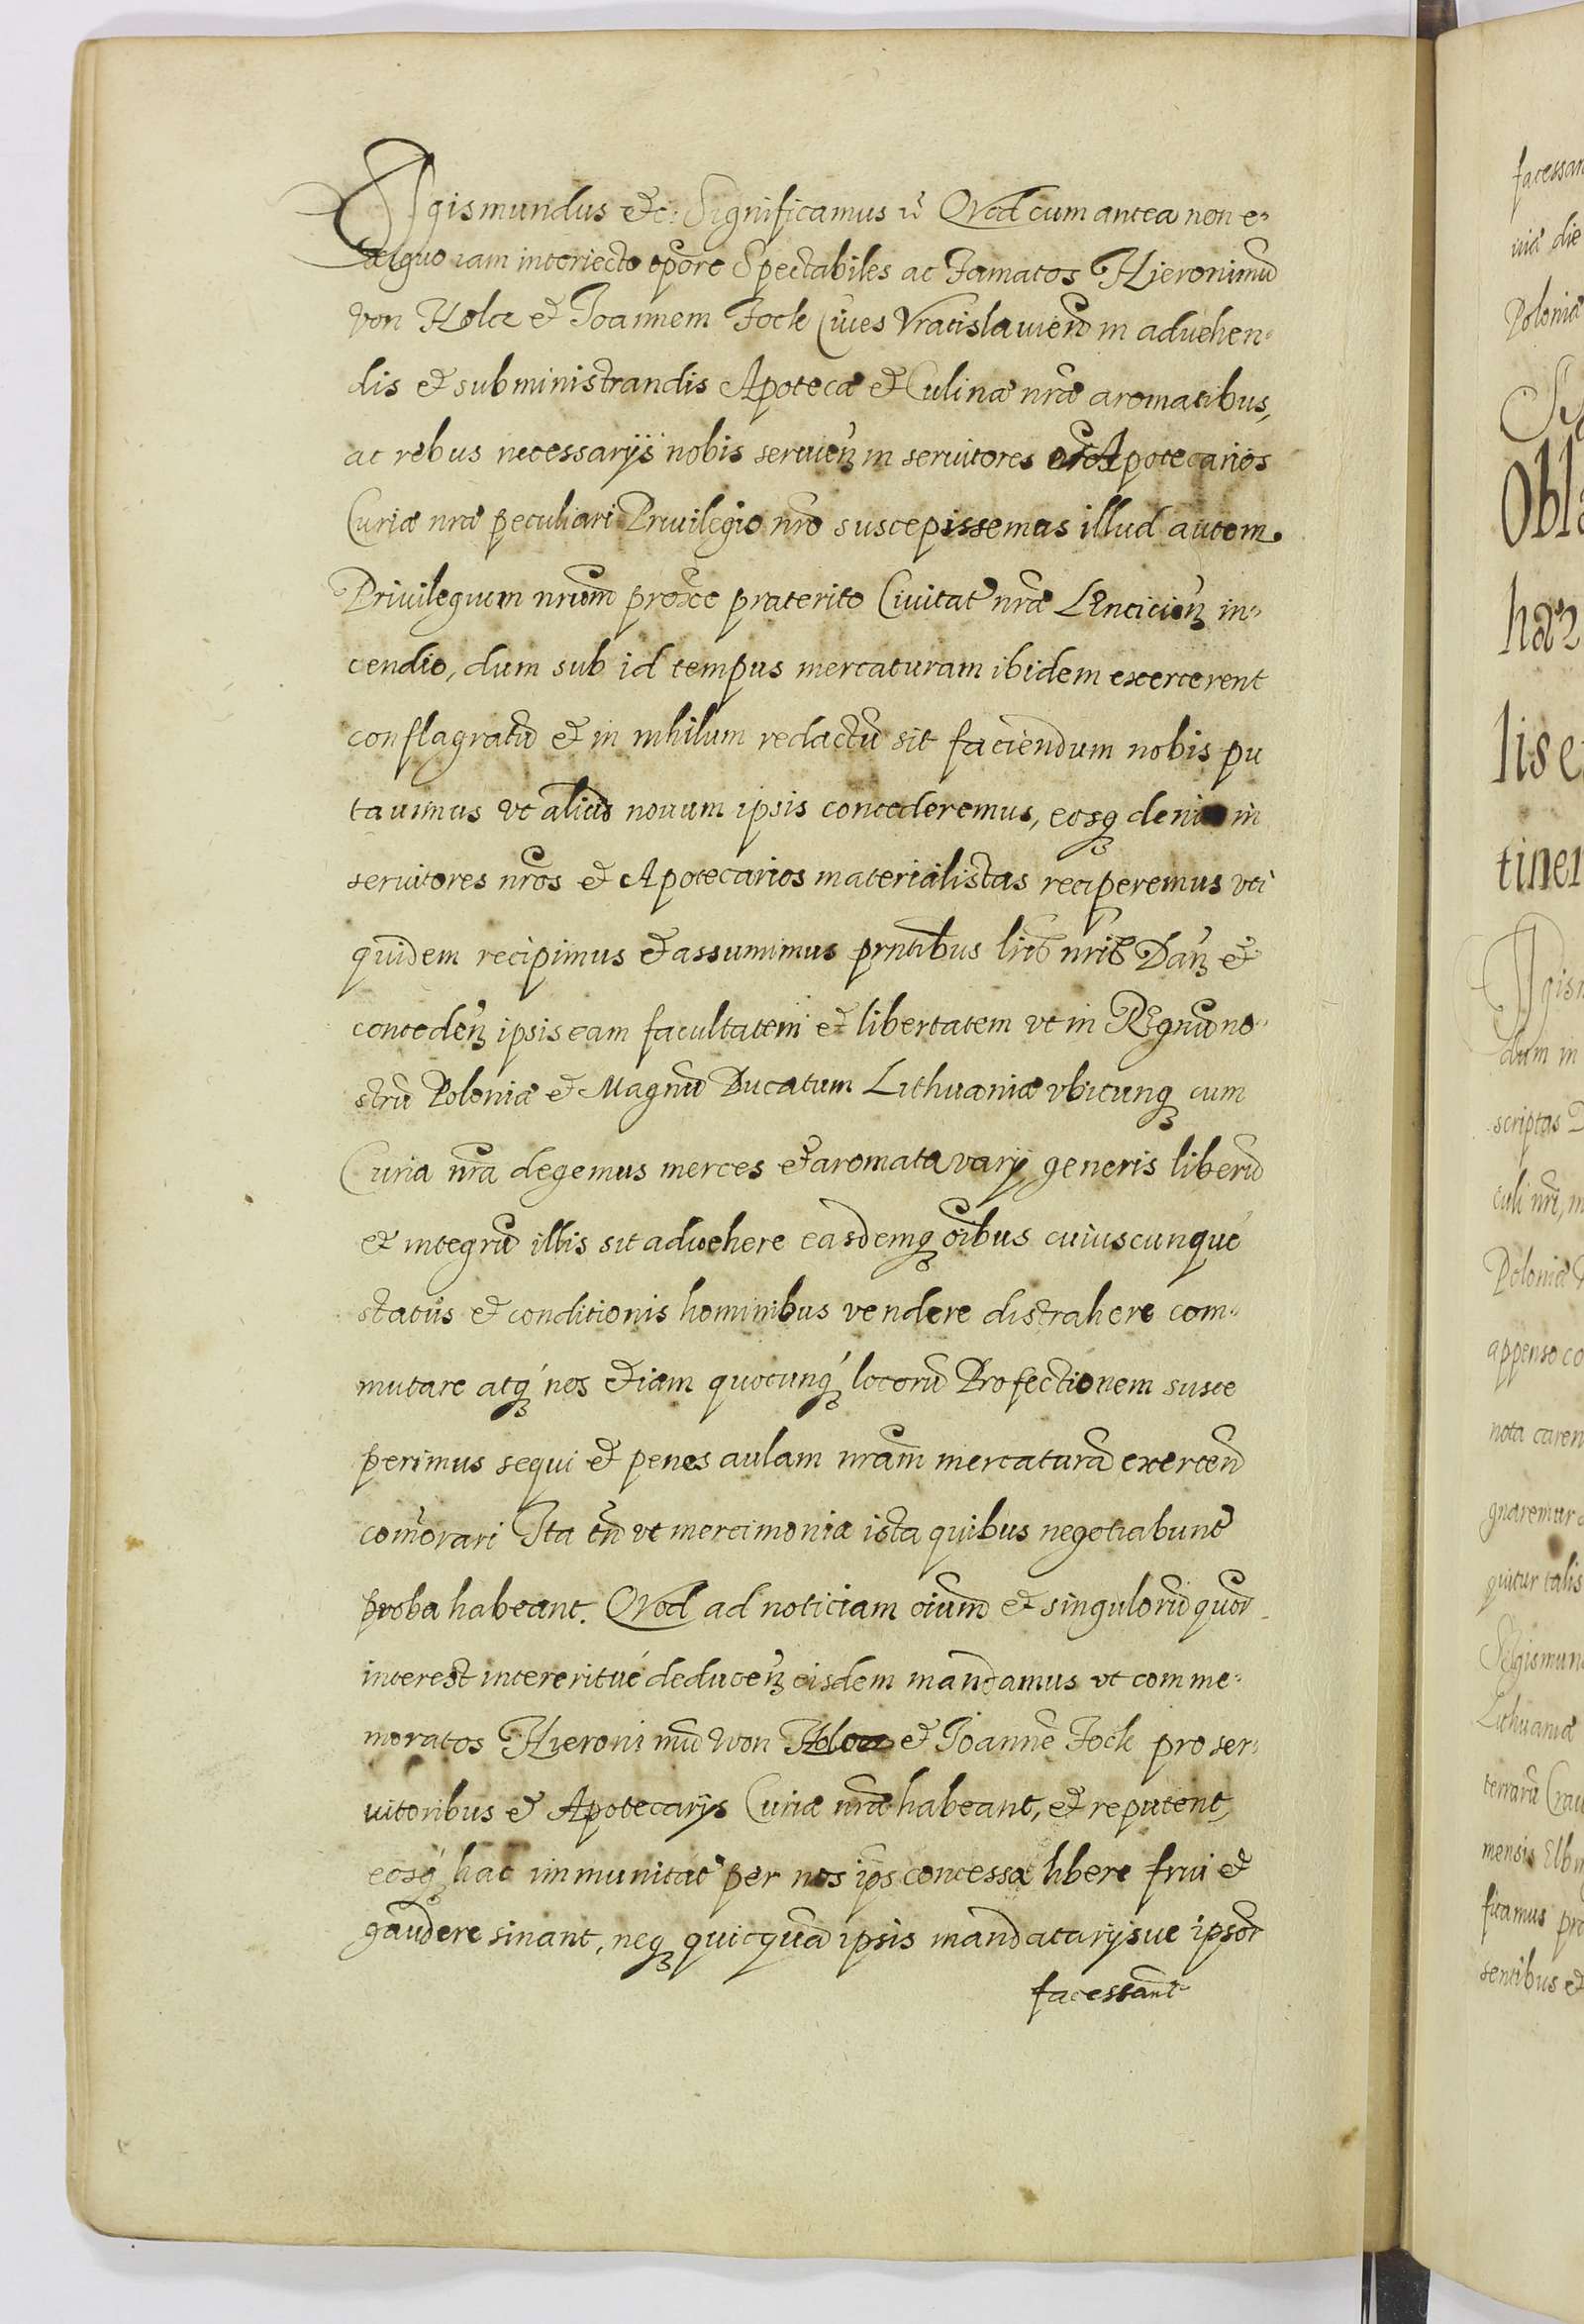 Sigismundus etc: Significamus etc Quod cum antea non e-
xiguo iam interiecto tpore Spectabiles ac Famatos Hieronimũ
von Holcz et Joannem Fock Ciues Vratislauien̄ in aduehen-
dis et subministrandis Apotecæ et Culinæ nr̃æ aromatibus,
ac rebus necessarijs nobis seruien̄ in seruitores Apotecarios
Curiæ nr̃æ peculiari Priuilegio nr̃o suscepissemus illud autem
Priuilegium nr̃um proxe præterito Ciuitatis nr̃æ Lencicien̄ in-
cendio, dum sub id tempus mercaturam ibidem exercerent
conflagratũ et in nihilum redactũ sit faciendum nobis pu
tauimus vt aliud nouum ipsis concederemus, eosq́ in
seruitores nr̃os et Apotecarios materialistas reciperemus vti
quidem recipimus et assumimus pr̃ntibus lr̃is nr̃is Dan̄ et
conceden̄ ipsis eam facultatem et libertatem vt in Regnũ no-
strũ Poloniæ et Magnũ Ducatum Lithuaniæ vbicunq́ cum
Curia nr̃a degemus merces et aromata varij generis liberũ
et integrũ illis sit aduehere easdemq́ oĩbus cuiuscunqué
statûs et conditionis hominibus vendere distrahere com-
mutare atq́ nos etiam quocunq́ locorũ Profectionem susce
perimus sequi et penes aulam nr̃am mercaturã exercend
com̃orari Ita tñ vt mercimonia ista quibus negotiabunt
proba habeant. Quod ad noticiam oĩum et singulorũ quor
interest intereritué deducen̄ eisdem mandamus vt comme-
moratos Hieronimũ von et Joannẽ Fock pro ser-
uitoribus et Apotecarijs Curiæ nr̃æ habeant, et reputent,
eosq́ hac immunitate per nos ip̃s concessa libere frui et
gaudere sinant, neq́ quicquã ipsis mandatarijsue ipsor
facessant
facessan
Poloniæ
scriptas
nota caren
Lithuaniæ
sentibus et